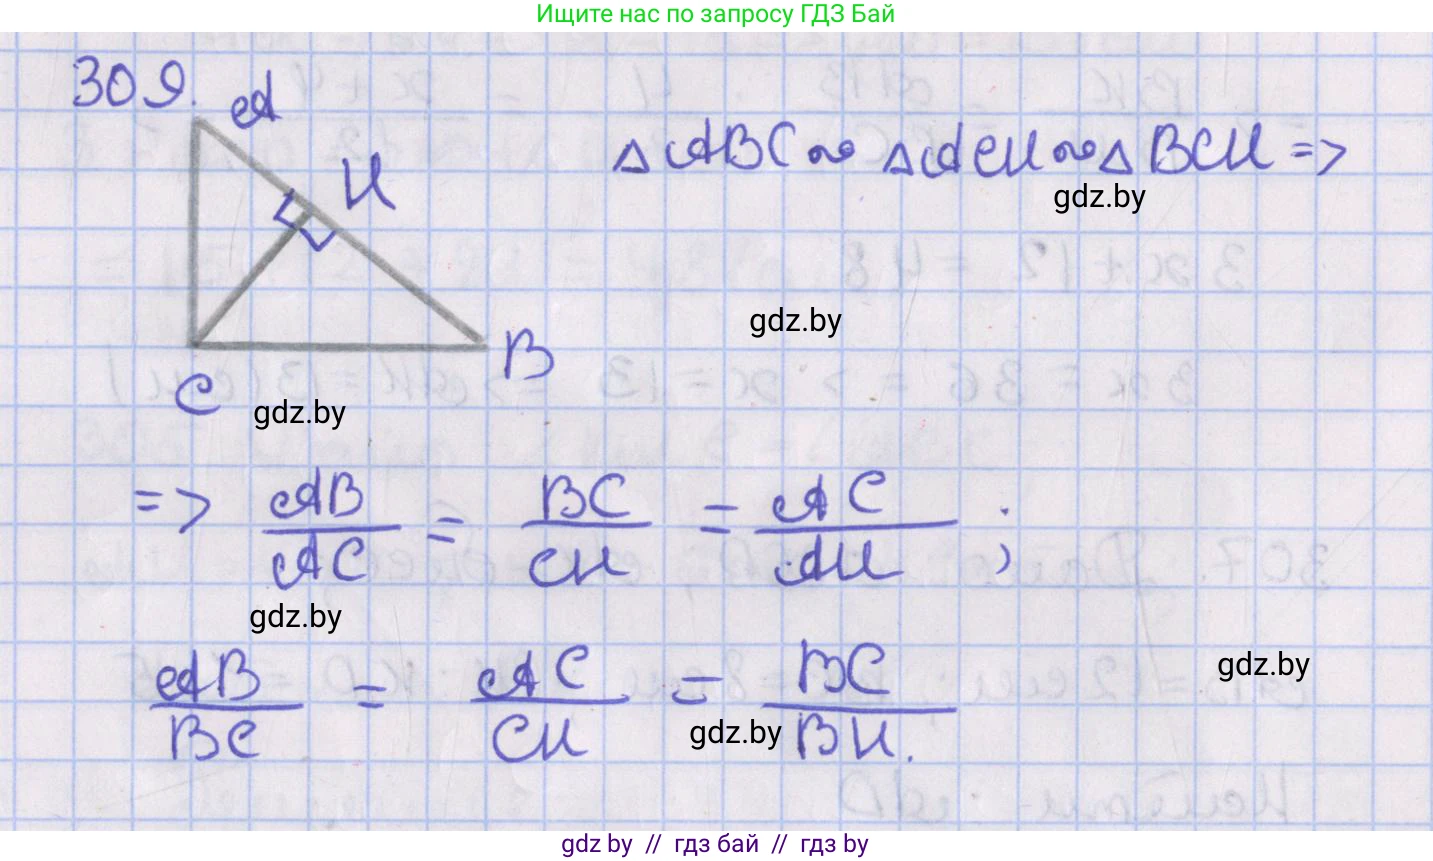 Ищите нас по запросу ГДЗ Бай
309.
A
H
B
C
△ABC ∾ △ACH ∾ △BCH =>
gdz.by
gdz.by
gdz.by
=> AB/AC = BC/CH = AC/AH ;
gdz.by
AB/BC = AC/CH = BC/BH.
gdz.by
gdz.by
gdz by // гдз бай // гдз by